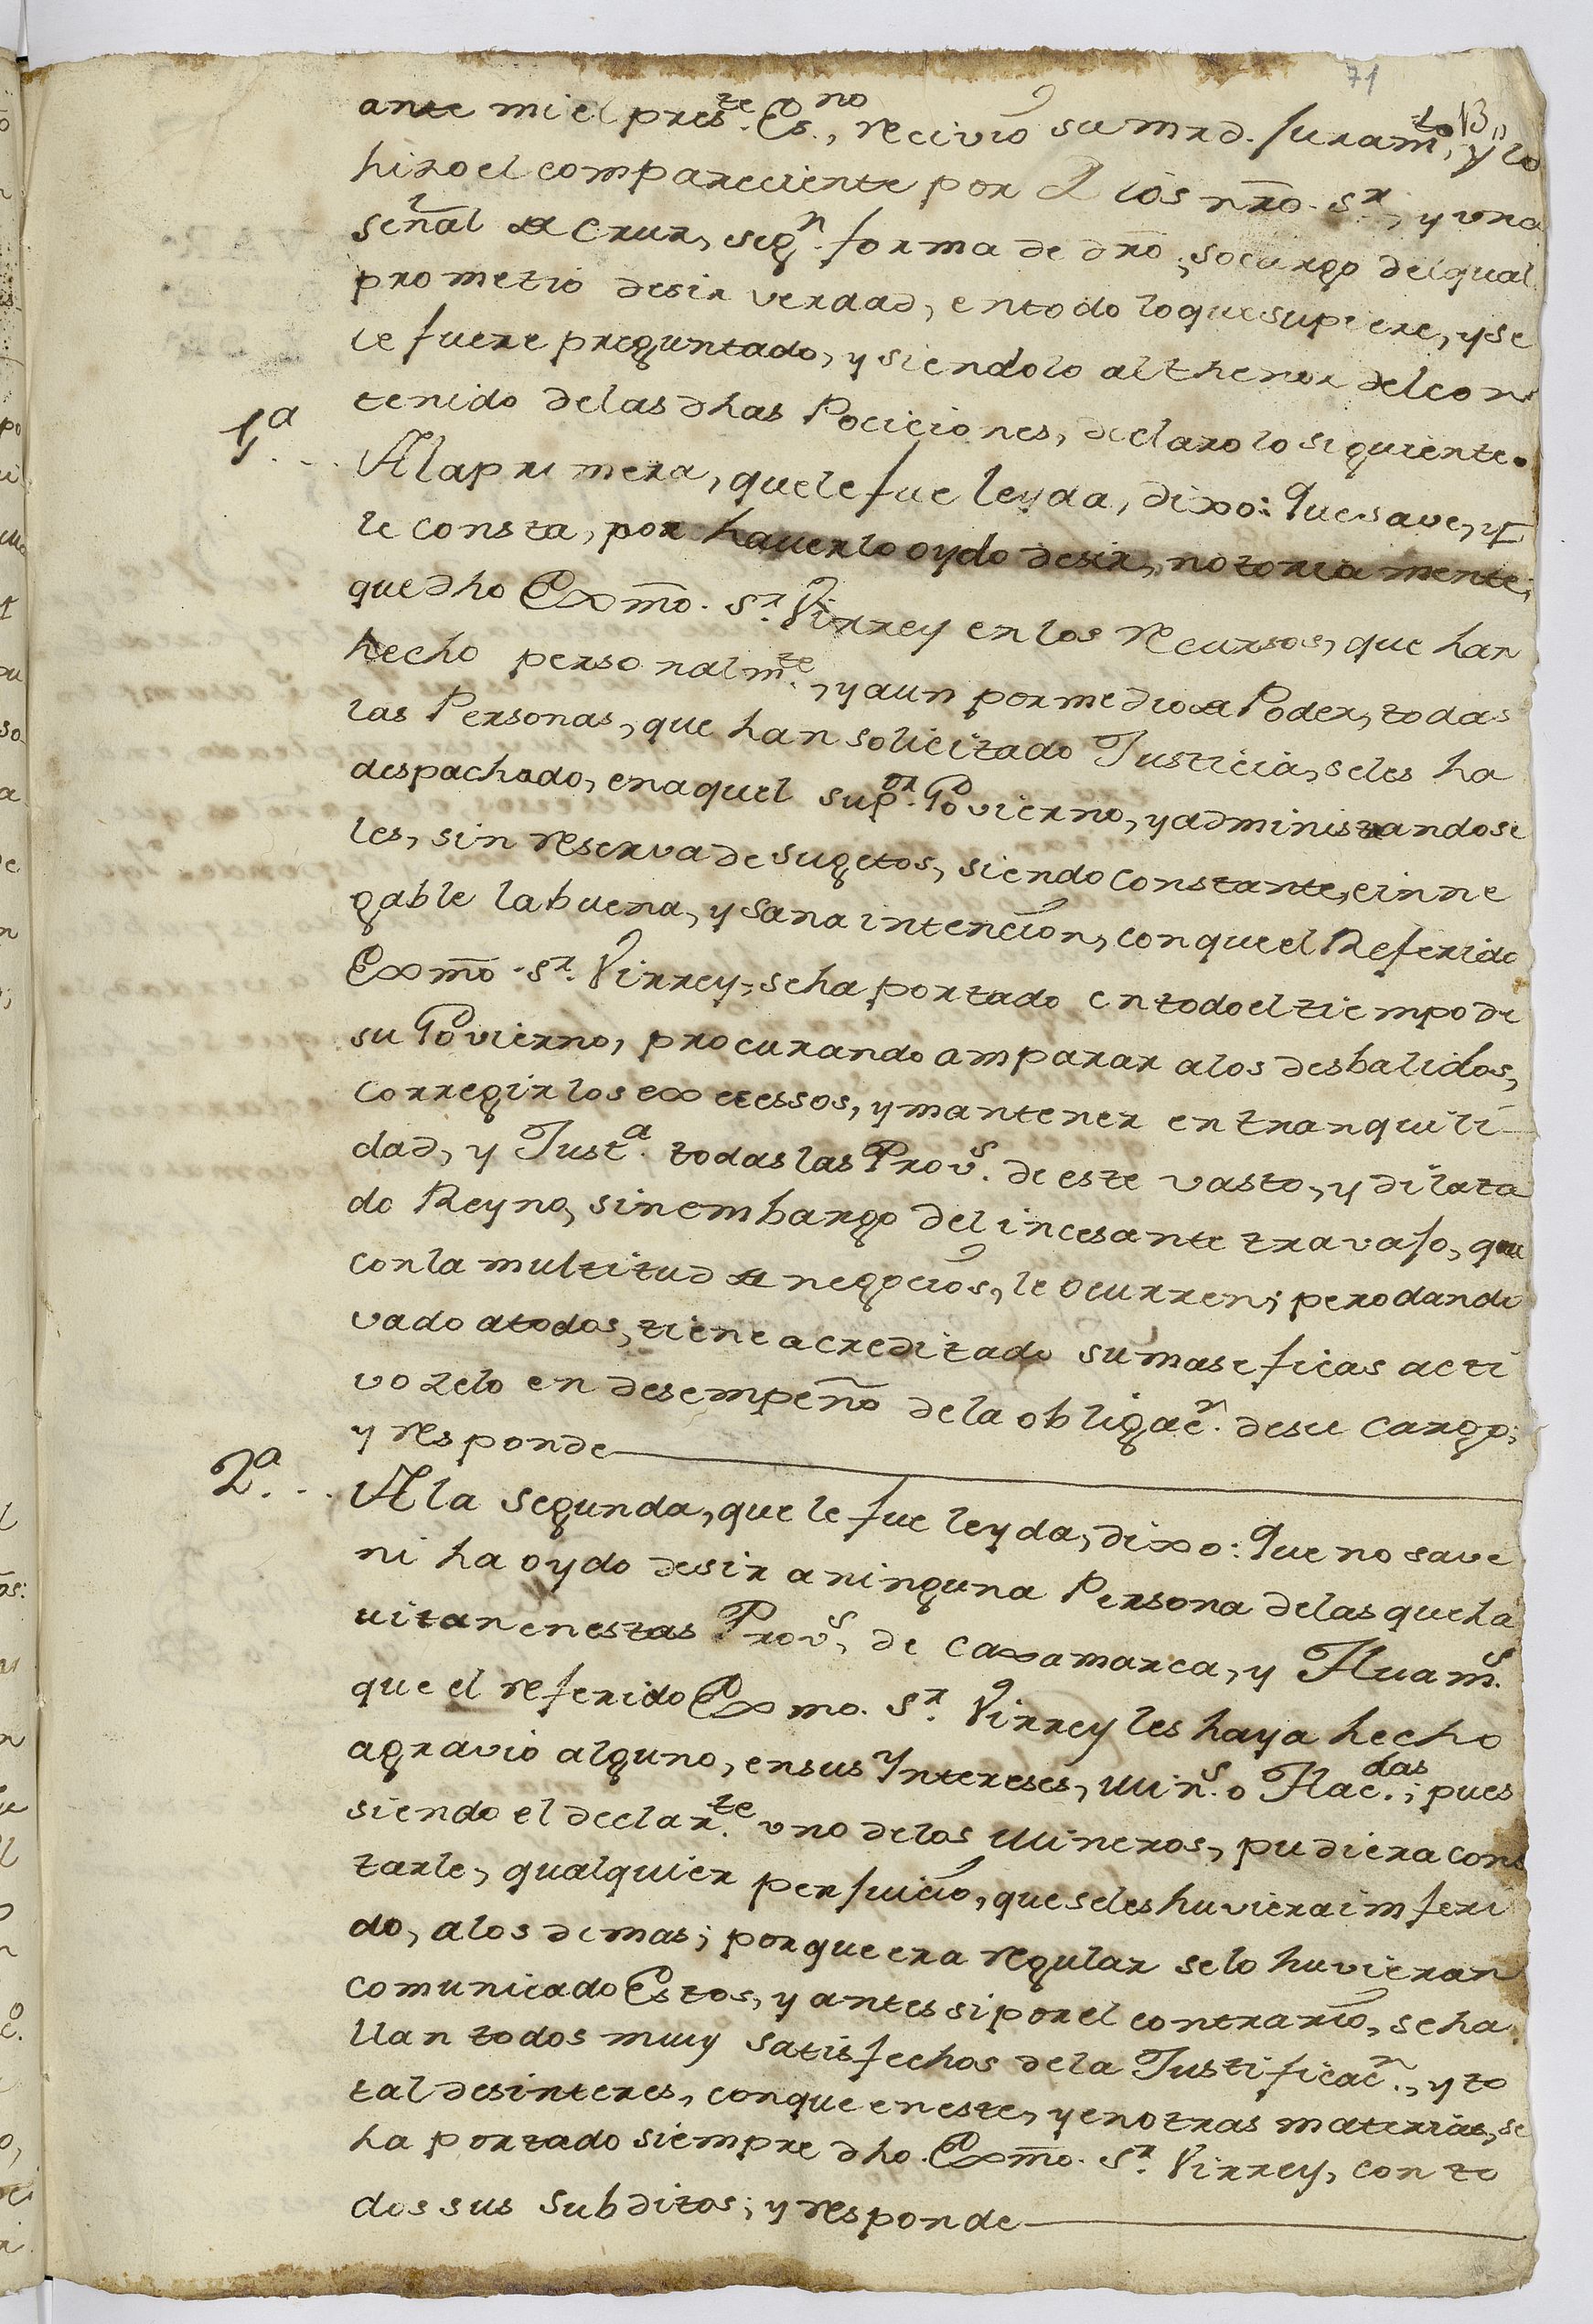 71
ante mi el pres.te Es.no, recivio su mrd. Juram.to, y lo
hizo el compareciente por Dios nro. S.r, y una
señal de Cruz, seg.n forma de dro. so cargo del qual
prometio desir verdad, en todo lo que supiere, y se
le fuere preguntado, y siendolo al thenor del con
tenido de las dhas Pociciones, declaro lo siguiente.
1.a .. A la primera, que le fue leyda, dixo: Que save, y
le consta, por haverlo oydo desir, notoriamente,
que dho Exmo. S.r Virrey en los recursos, que han
hecho personalm.te, y aun por medio de Poder, todas
las Personas, que han solicitado Justicia, se les ha
despachado, en aquel sup.or Govierno, y administrandose
les, sin reserva de sugetos, siendo constante, e inne
gable la buena, y sana intencion, con que el Referido
Exmo. S.r Virrey, se ha portado en todo el tiempo de
su Govierno, procurando amparar a los desbalidos,
corregir los excecessos, y mantener en tranquili-
dad, y Just.a todas las Prov.s de este vasto, y dilata
do Reyno, sin embargo del incesante travajo, que
con la multitud de negocios, le ocurren; pero dando
vado a todos, tiene acreditado su mas eficas acti
vo zelo en desempeño de la obligac.n de su cargo;
y responde
2.a .. A la segunda, que le fue leyda, dixo: Que no save
ni ha oydo desir a ninguna Persona de las que ha
vitan en estas Prov.s de Caxamarca, y Huam.s
que el referido Exmo. S.r Virrey les haya hecho
agravio alguno, en sus Yntereses, Min.s o Hac.das; pues
siendo el declar.te uno de los Mineros, pudiera cons
tarle, qualquier perjuicio, que se les huviera imferi
do, a los demas; porque era regular se lo huvieran
comunicado Estos, y antes si por el contrario, se ha
llan todos muy satisfechos de la Justificac.n, y to
tal desinteres, con que en este, y en otras materias, se
ha portado siempre dho. Exmo. S.r Virrey, con to
dos sus subditos; y responde